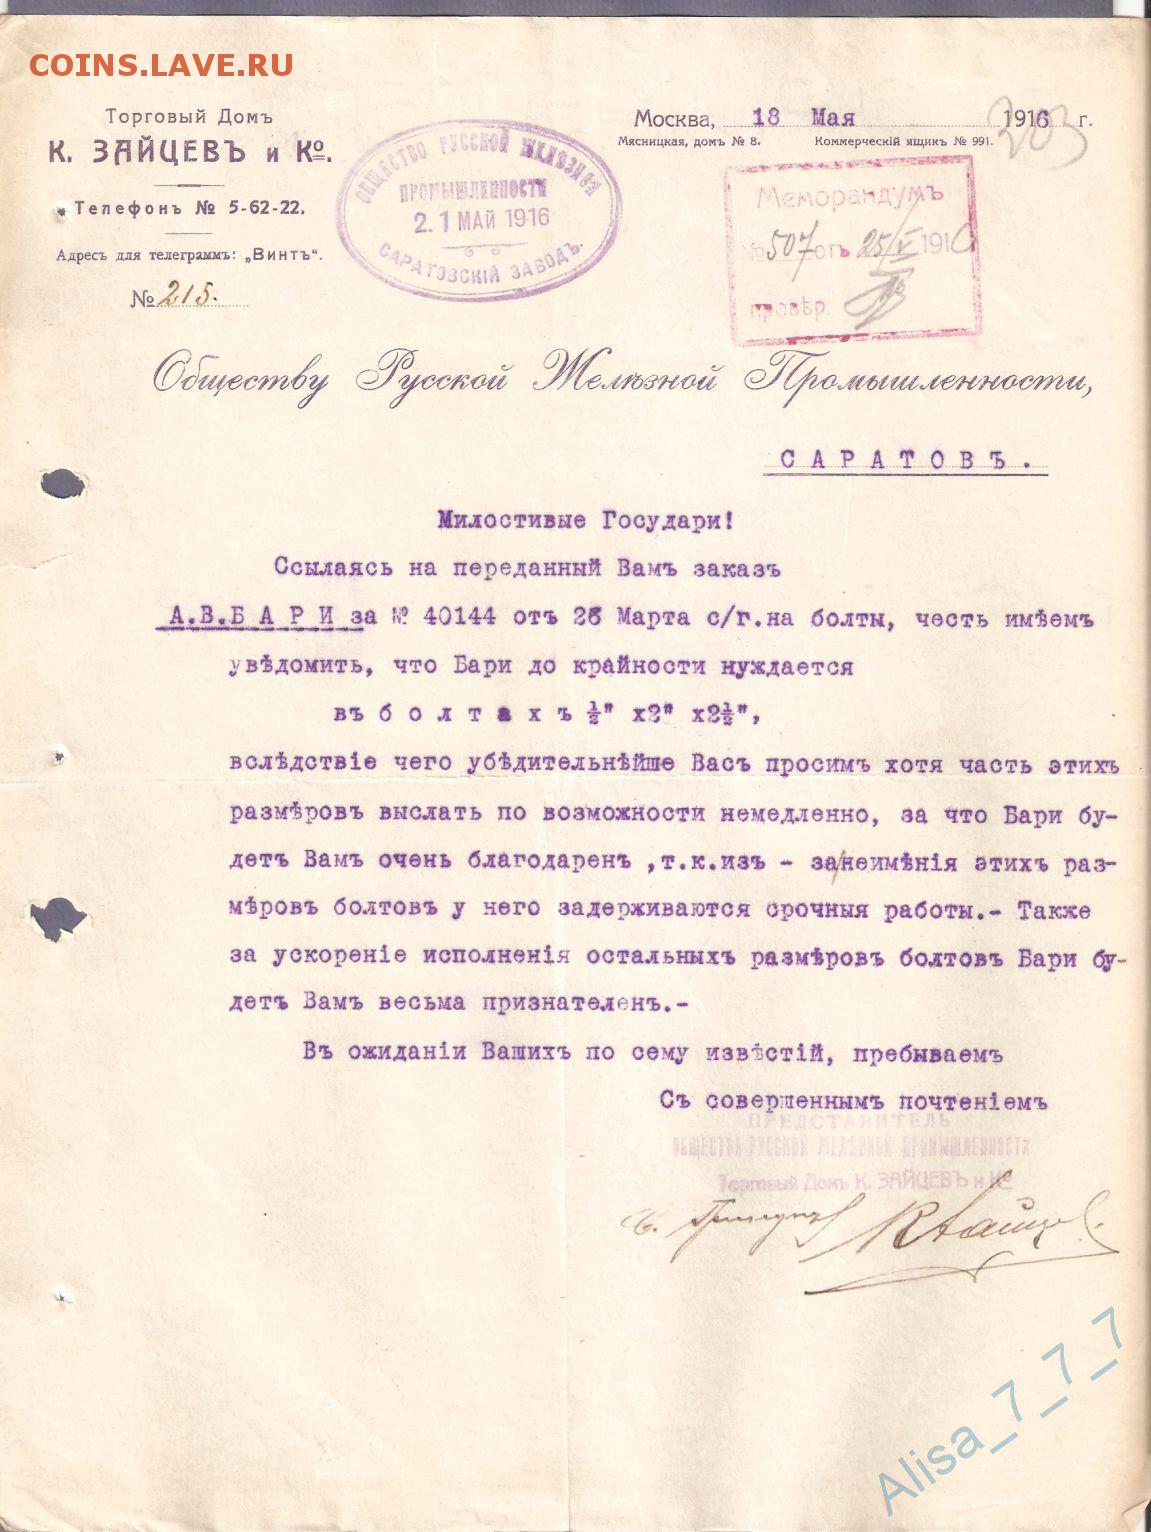 COINS.LAVE.RU
Торговый Домъ
К. ЗАЙЦЕВЪ и Кº.
Телефонъ № 5-62-22.
Адресъ для телеграммъ: „Винтъ“.
№ 215.
ОБЩЕСТВО РУССКОЙ ЖЕЛѢЗНОЙ
ПРОМЫШЛЕННОСТИ
21 МАЙ 1916
САРАТОВСКІЙ ЗАВОДЪ.
Москва, 18 Мая 1916 г.
Мясницкая, домъ № 8. Коммерческій ящикъ № 991.
203
Меморандумъ
№ 507 отъ 25/V 1916
провѣр.
Обществу Русской Желѣзной Промышленности,
САРАТОВЪ.
Милостивые Государи!
Ссылаясь на переданный Вамъ заказъ
А.В.БАРИ за № 40144 отъ 26 Марта с/г.на болты, честь имѣемъ
увѣдомить, что Бари до крайности нуждается
въ болтахъ ½" х2" х2½",
вслѣдствіе чего убѣдительнѣйше Васъ просимъ хотя часть этихъ
размѣровъ выслать по возможности немедленно, за что Бари бу-
детъ Вамъ очень благодаренъ ,т.к.изъ - за/неимѣнія этихъ раз-
мѣровъ болтовъ у него задерживаются срочныя работы.- Также
за ускореніе исполненія остальныхъ размѣровъ болтовъ Бари бу-
детъ Вамъ весьма признателенъ.-
Въ ожиданіи Вашихъ по сему извѣстій, пребываемъ
Съ совершеннымъ почтеніемъ
ПРЕДСТАВИТЕЛЬ
ОБЩЕСТВА РУССКОЙ ЖЕЛѢЗНОЙ ПРОМЫШЛЕННОСТИ
Торговый Домъ К. ЗАЙЦЕВЪ и Кº
К Зайцев
Alisa_7_7_7